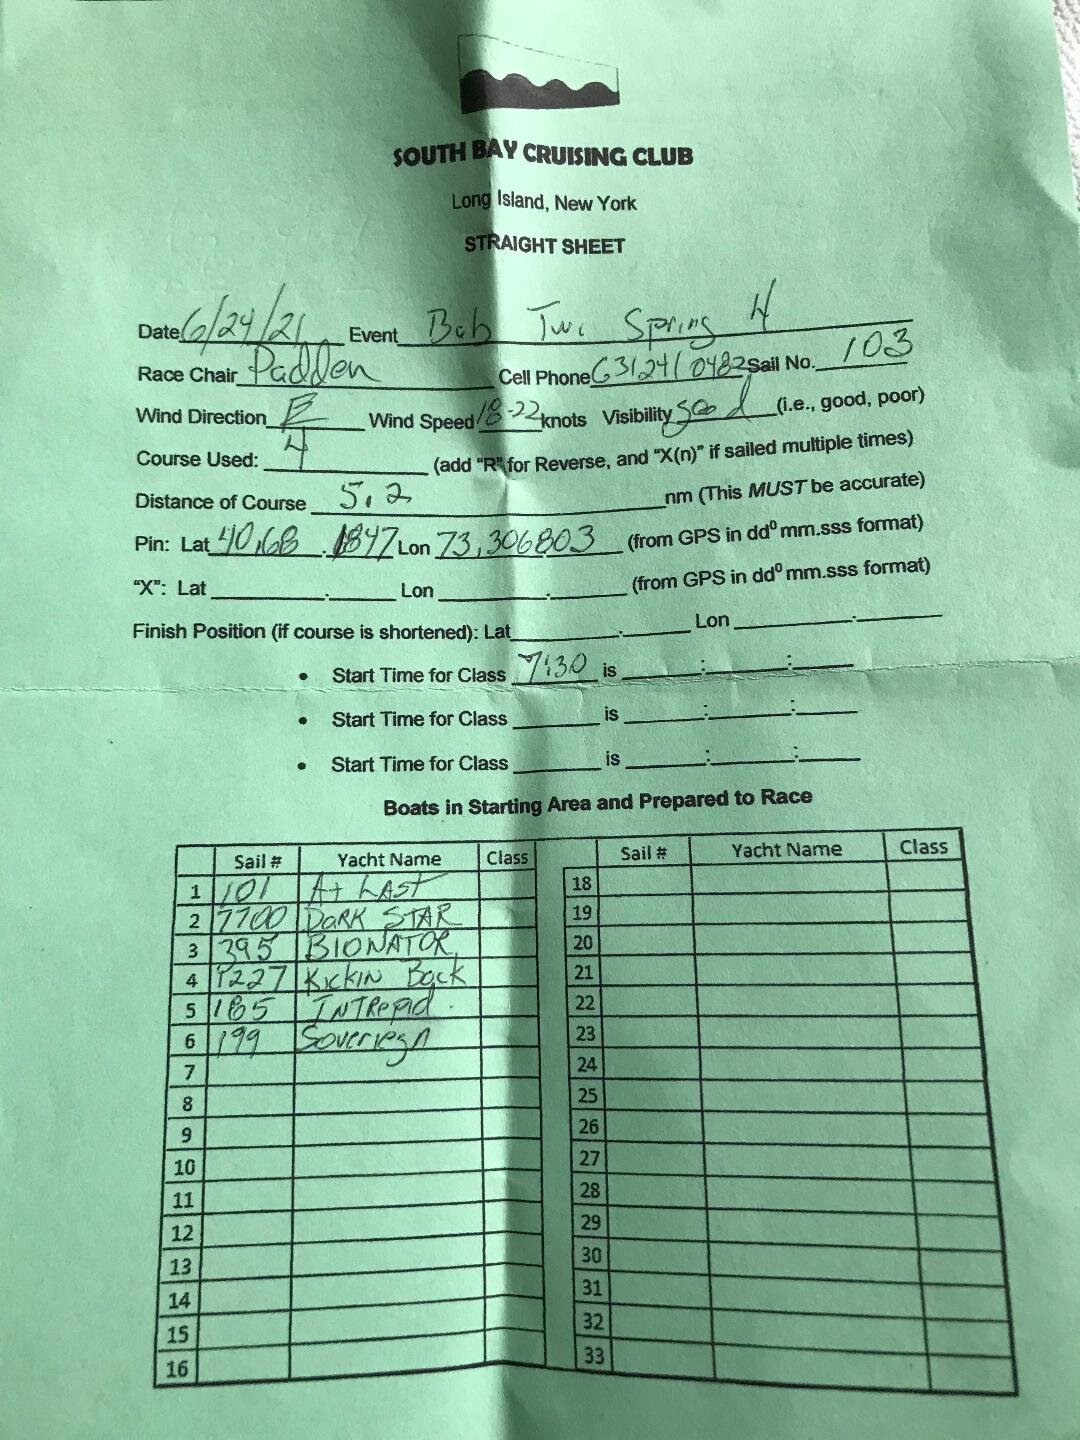 SOUTH BAY CRUISING CLUB
Long Island, New York
STRAIGHT SHEET
Date 6/24/21 Event Bob Twi Spring 4
Race Chair Padden Cell Phone 6312410482 Sail No. 103
Wind Direction E Wind Speed 18-22 knots Visibility good (i.e., good, poor)
Course Used: 4 (add "R" for Reverse, and "X(n)" if sailed multiple times)
Distance of Course 5.2 nm (This MUST be accurate)
Pin: Lat 40.68 .1847 Lon 73.306803 (from GPS in dd⁰ mm.sss format)
"X": Lat ____.____ Lon ____.____ (from GPS in dd⁰ mm.sss format)
Finish Position (if course is shortened): Lat ____.____ Lon ____.____
• Start Time for Class 7:30 is ____:____:____
• Start Time for Class ____ is ____:____:____
• Start Time for Class ____ is ____:____:____
Boats in Starting Area and Prepared to Race
Sail # Yacht Name Class
1 101 At LAST
2 7700 DARK STAR
3 395 BIONATOR
4 P227 KickIN Back
5 185 INTRepid
6 199 Soveriegn
7
8
9
10
11
12
13
14
15
16
Sail # Yacht Name Class
18
19
20
21
22
23
24
25
26
27
28
29
30
31
32
33